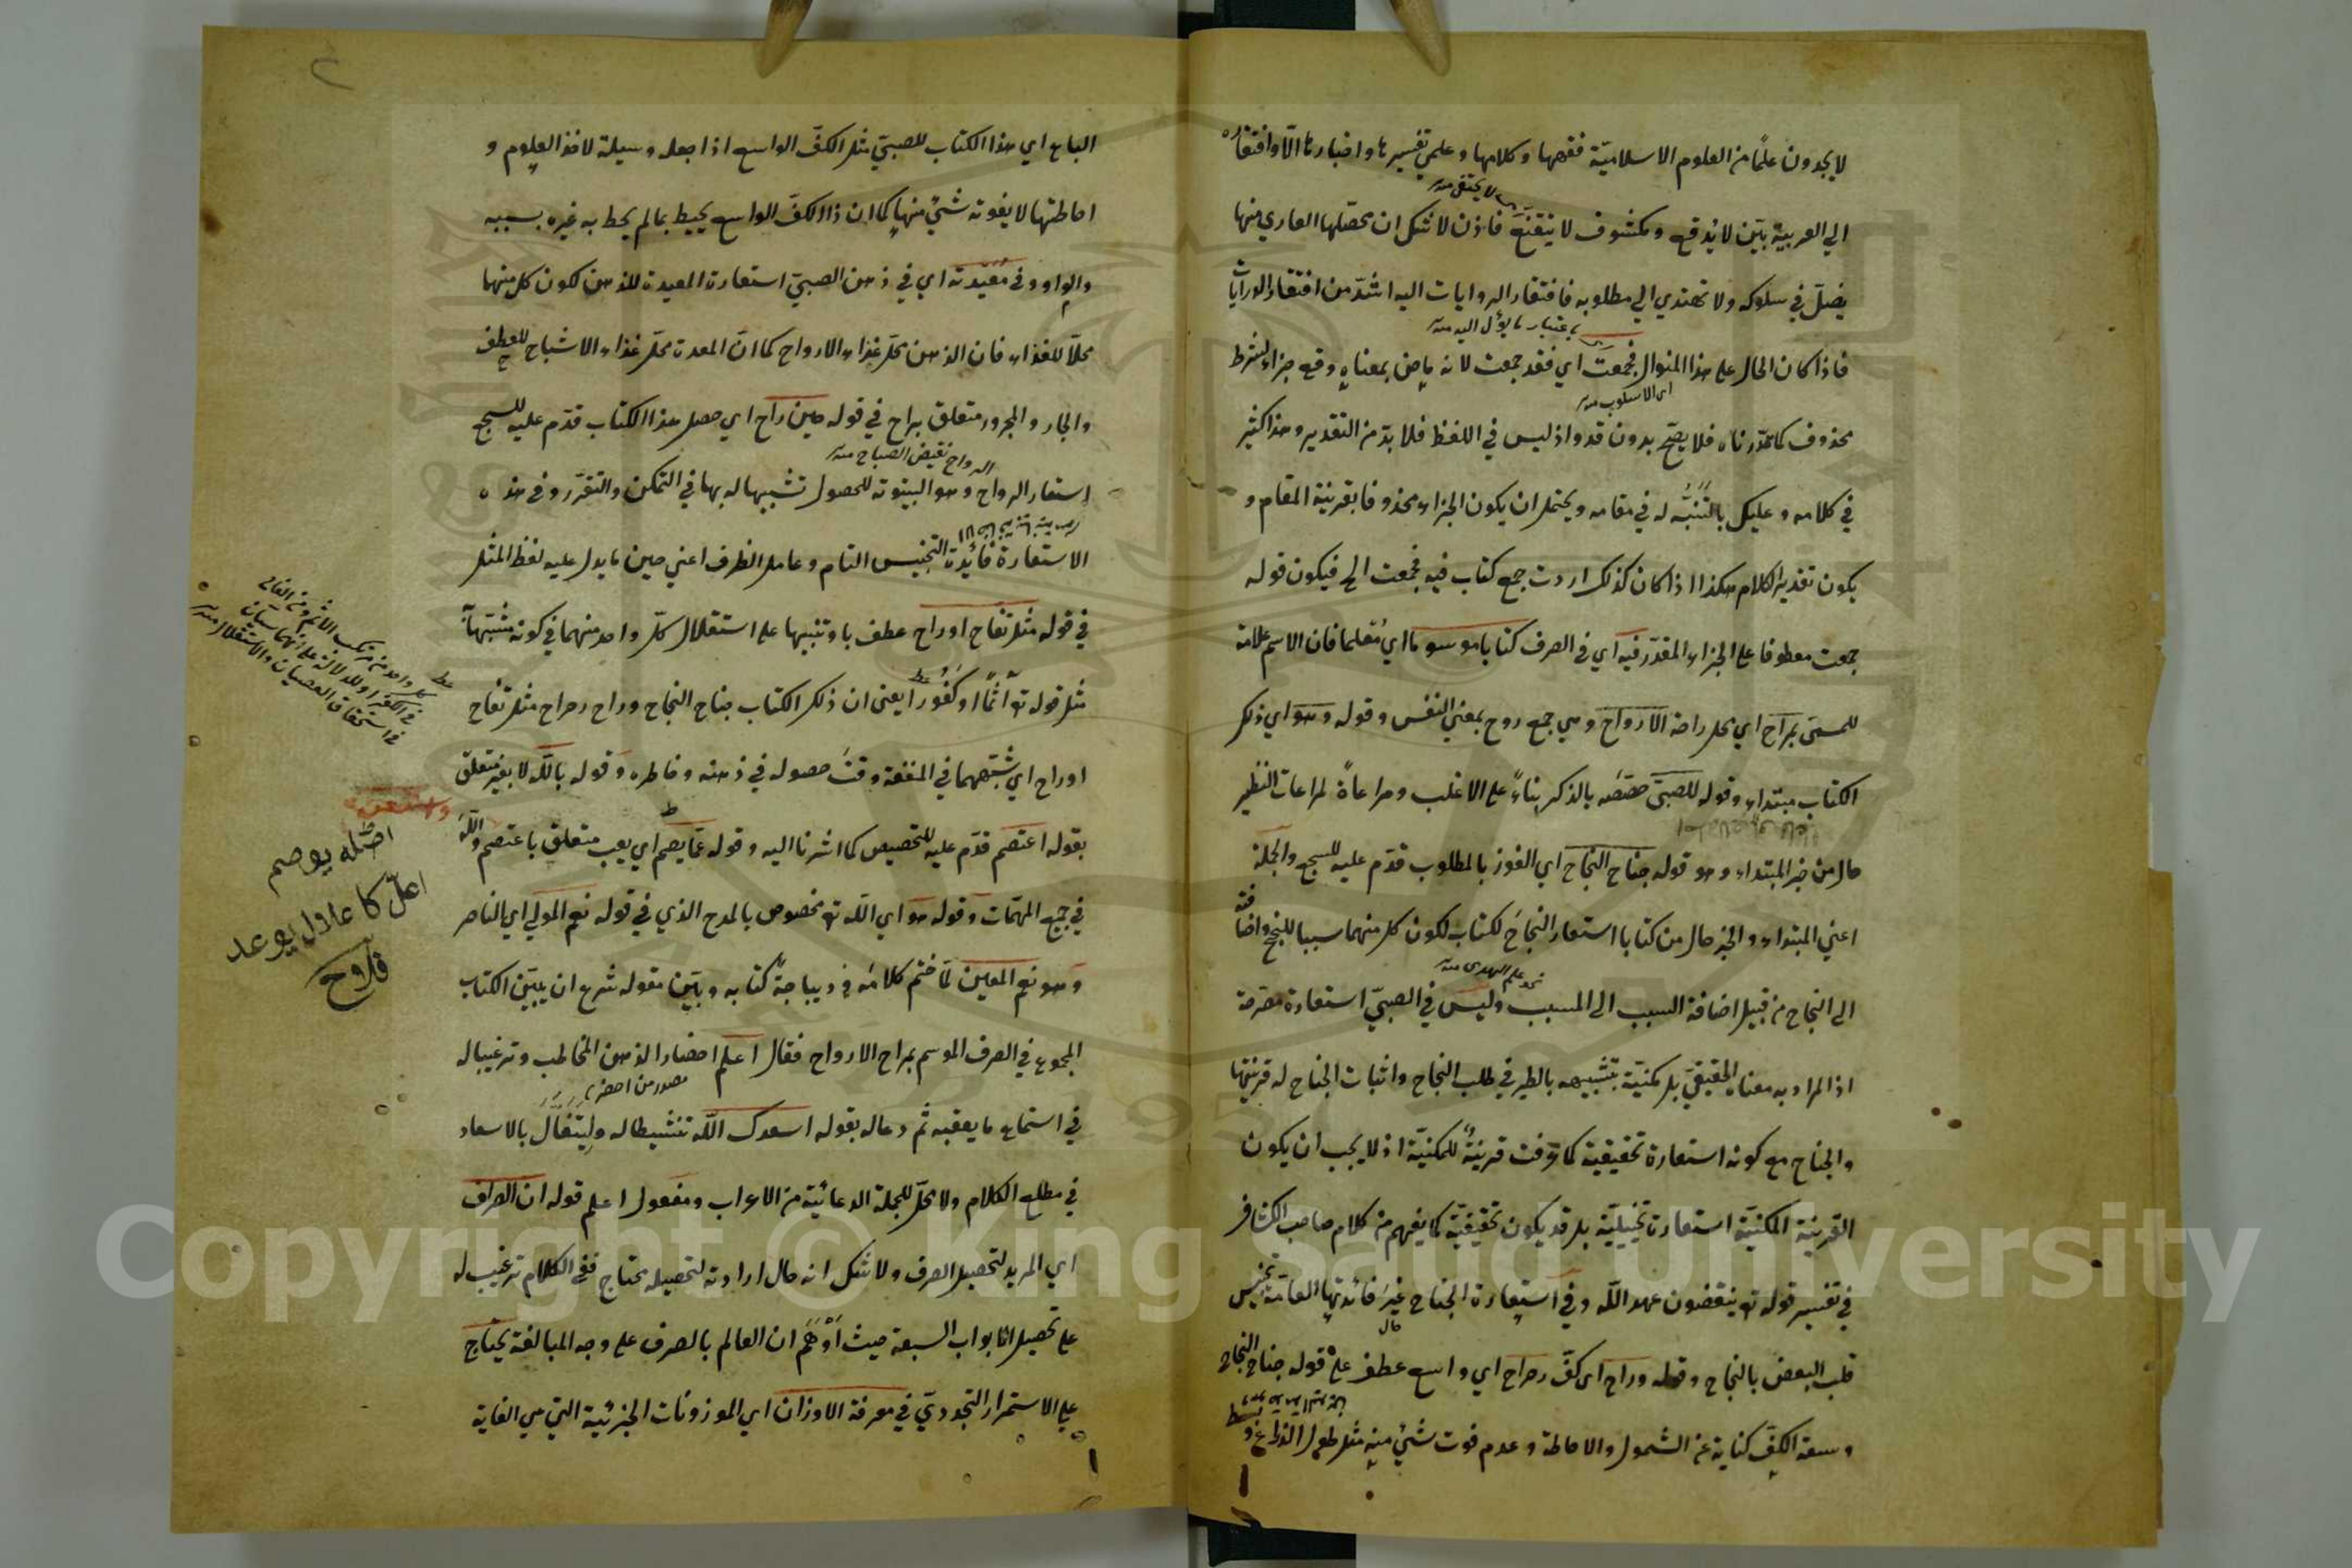 لا يجدون علمًا من العلوم الاسلاميّة فقهها وكلامها وعلمي تفسيرها واخبارها الّا وافتقاره
لا يختفى منه
الي العربية بيّن لا يدفع ومكشوف لا يتقنّع فاذن لا شك ان محصّلها العاري منها
يضلّ في سلوكه ولا تهتدي الي مطلوبه فافتقار الروايات اليه اشدّ من افتقار الدرايات
باعتبار ما يؤل اليه منه
فاذا كان الحال على هذا المنوال فجمعت اي فقد جمعت لانه ماض بمعناه وقع جزاء لشرط
اى الاسلوب منه
محذوف كما قدّرناه فلا يصحّ بدون قد واذ ليس في اللفظ فلا بدّ من التقدير وهذا كثير
في كلامه وعليك بالتنبّه له في مقامه ويحتمل ان يكون الجزاء محذوفا بقرينة المقام و
يكون تقدير الكلام هكذا اذا كان كذلك اردت جمع كتاب فيه فجمعت الخ فيكون قوله
جمعت معطوفا على الجزاء المقدّر فيه اي في الصرف كتابا موسوما اي مُعلما فان الاسم علامة
للمسمى بمراح اي محل راحة الارواح وهي جمع روح بمعني النفس وقوله وهو اي ذلك
الكتاب مبتداء وقوله للصبىّ خصّصه بالذكر بناءً على الاغلب ومراعاةً لمراعات النظير
حال من خبر المبتداء وهو قوله جناح النجاح اي الفوز بالمطلوب قدّم عليه للسجع والجملة
اعني المبتداء والخبر حال من كتابا استعار النجاحَ لكتاب لكون كل منهما سببا للنجح واضافته
نحو علم الهدى منه
الى النجاح من قبيل اضافة السبب الى المسبب وليس في الصبيّ استعارة مصرّحة
اذ المراد به معناه الحقيقيّ بل مكنيّة بتشبيهه بالطير في طلب النجاح واثبات الجناح له قرينتها
والجناح مع كونه استعارة تحقيقية كما عرفت قرينةً للمكنيّة اذ لا يجب ان يكون
القرينة المكنيّة استعارة تخييليّة بل قد يكون تحقيقيّة كما يفهم من كلام صاحب الكشاف
في تفسير قوله تع ينقضون عهد اللّه وفي استعارة الجناح غيرَ فائدتها العامّة تجنيس
قلب البعض بالنجاح وقوله وراح اى كفّ رحراح اي واسع عطف على قوله جناح النجاح
وسعة الكفّ كناية عن الشمول والاحاطة وعدم فوت شئ منه مثل طول الذراع وبسط
الباع اي هذا الكتاب للصبيّ مثل الكفّ الواسع اذا جعله وسيلة لاخذ العلوم و
احاطتها لا يفوته شئ منها كما ان ذا الكفّ الواسع يحيط بما لم يحط به غيره بسببه
والواو وفي مَعِيدته اي في ذهن الصبيّ استعارة المعيدة للذهن لكون كل منها
محلّا للغذاء فان الذهن محلّ غذاء الارواح كما انّ المعدة محل غذاء الاشباح للعطف
والجار والمجرور متعلق براح في قوله حين راح اي حصل هذا الكتاب قدّم عليه للسجع
الرواح نقيض الصباح منه
استعار الرواح وهو البيتوتة للحصول تشبيها له بها في التمكن والتقرّر وفي هذه
الاستعارة فائدة التجنيس التام وعامل الظرف اعني حين ما يدل عليه لفظ المثل
في قوله مثل تفاح او راح عطف باو تنبيها على استقلال كلّ واحد منهما في كونه مشبّها به
مثل قوله تع آثمًا او كفُورا يعني ان ذلك الكتاب جناح النجاح وراح رحراح مثل تفاح
او راح اي شبّههما في المنفعة وقتَ حصوله في ذهنه وخاطره وقوله باللّه لا بغير متعلق
بقوله اعتصم قدّم عليه للتخصيص كما اشرنا اليه وقوله عمّا يصم اي يعيب متعلق باعتصم واللّه
في جميع المهمّات وقوله هو اي اللّه تع مخصوص بالمدح الذي في قوله نعم المولى اي الناصر
وهو نعم المعين لمّا ختم كلامه في ديباجةٍ كتابه وبيّن مقوله شرع ان يبيّن الكتاب
المجموع في الصرف الموسم بمراح الارواح فقال اعلم احضار الذهن المخاطب وترغيبا له
مصدر من احضر
في استماع ما يعقبه ثم دعا له بقوله اسعدك اللّه تنشيطا له ولِيَتَفأّل بالاسعاد
في مطلع الكلام ولا محلّ للجملة الدعائيّة من الاعراب ومفعول اعلم قوله ان الصراف
اي المريد لتحصيل الصرف ولا شك انه حال ارادته لتحصيله محتاج ففي الكلام ترغيب له
على تحصيل الابواب السبعة حيث أوْهَمَ ان العالم بالصرف على وجه المبالغة يحتاج
على الاستمرار التجدديّ في معرفة الاوزان اي الموزونات الجزئية التي هي الغاية
كل واحد من مرتكب الاثم ومن الغالي
في الكفر او للدلالة على انهما سيان
في استحقاق العصيان والاستقلال منه
اصله يوصم
اعلّ كاعلال يوعد
فلاح
Copyright © King Saud University